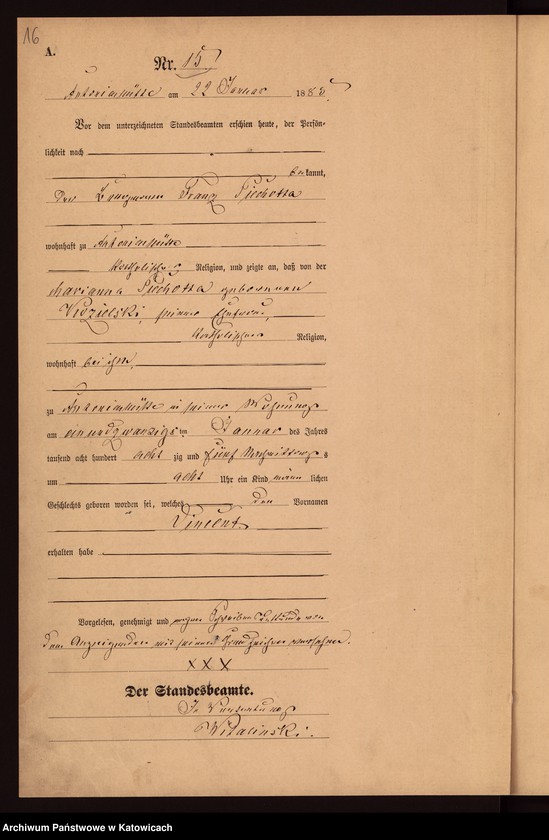 16
A.
Nr. 15
Antonienhütte am 22 Januar 1885
Vor dem unterzeichneten Standesbeamten erschien heute, der Persön-
lichkeit nach
bekannt,
der Franz Piechotta
wohnhaft zu Antonienhütte
katholischer Religion, und zeigte an, daß von der
Marianna Piechotta geborenen
seiner Ehefrau,
katholischer Religion,
wohnhaft bei ihm,
zu Antonienhütte in seiner Wohnung
am einundzwanzigsten Januar des Jahres
tausend acht hundert acht zig und fünf Nachmittags
um acht Uhr ein Kind männ lichen
Geschlechts geboren worden sei, welches den Vornamen
Vincent
erhalten habe
Vorgelesen, genehmigt und wegen
dem Anzeigenden mit seinem Handzeichen versehen.
XXX
Der Standesbeamte.
In Vertretung
Widalinski.
Archiwum Państwowe w Katowicach